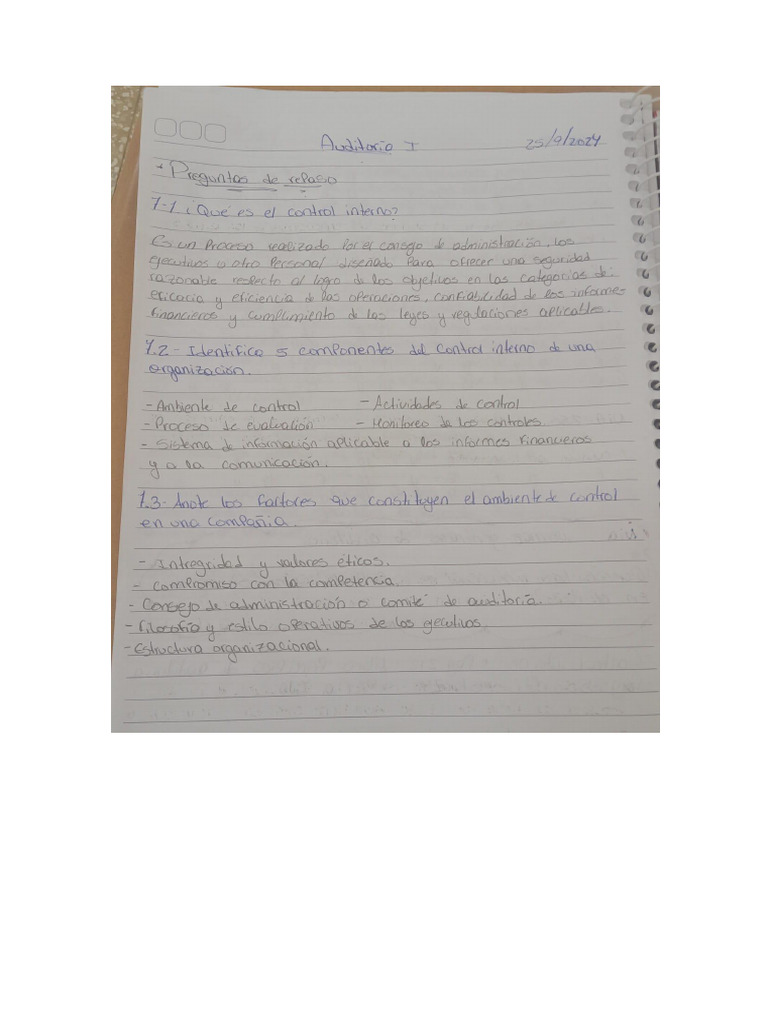 Auditoria I 25/9/2024
- Preguntas de repaso
7-1 ¿Qué es el control interno?
Es un Proceso realizado Por el consejo de administración, los
ejecutivos u otro Personal diseñado Para ofrecer una seguridad
razonable respecto al logro de los objetivos en las categorias de:
eficacia y eficiencia de las operaciones, confiabilidad de los informes
financieros y cumplimiento de las leyes y regulaciones aplicables.
7.2 - Identifica 5 componentes del Control interno de una
organización.
- Ambiente de control - Actividades de control
- Proceso de evaluación - Monitoreo de los controles.
- Sistema de información aplicable a los informes financieros
y a la comunicación.
7.3- Anote los factores que constituyen el ambiente de control
en una compañia.
- Intregridad y valores éticos.
- compromiso con la competencia.
- Consejo de administración o comité de auditoría.
- Filosofía y estilo operativos de los gecutivos.
- Estructura organizacional.